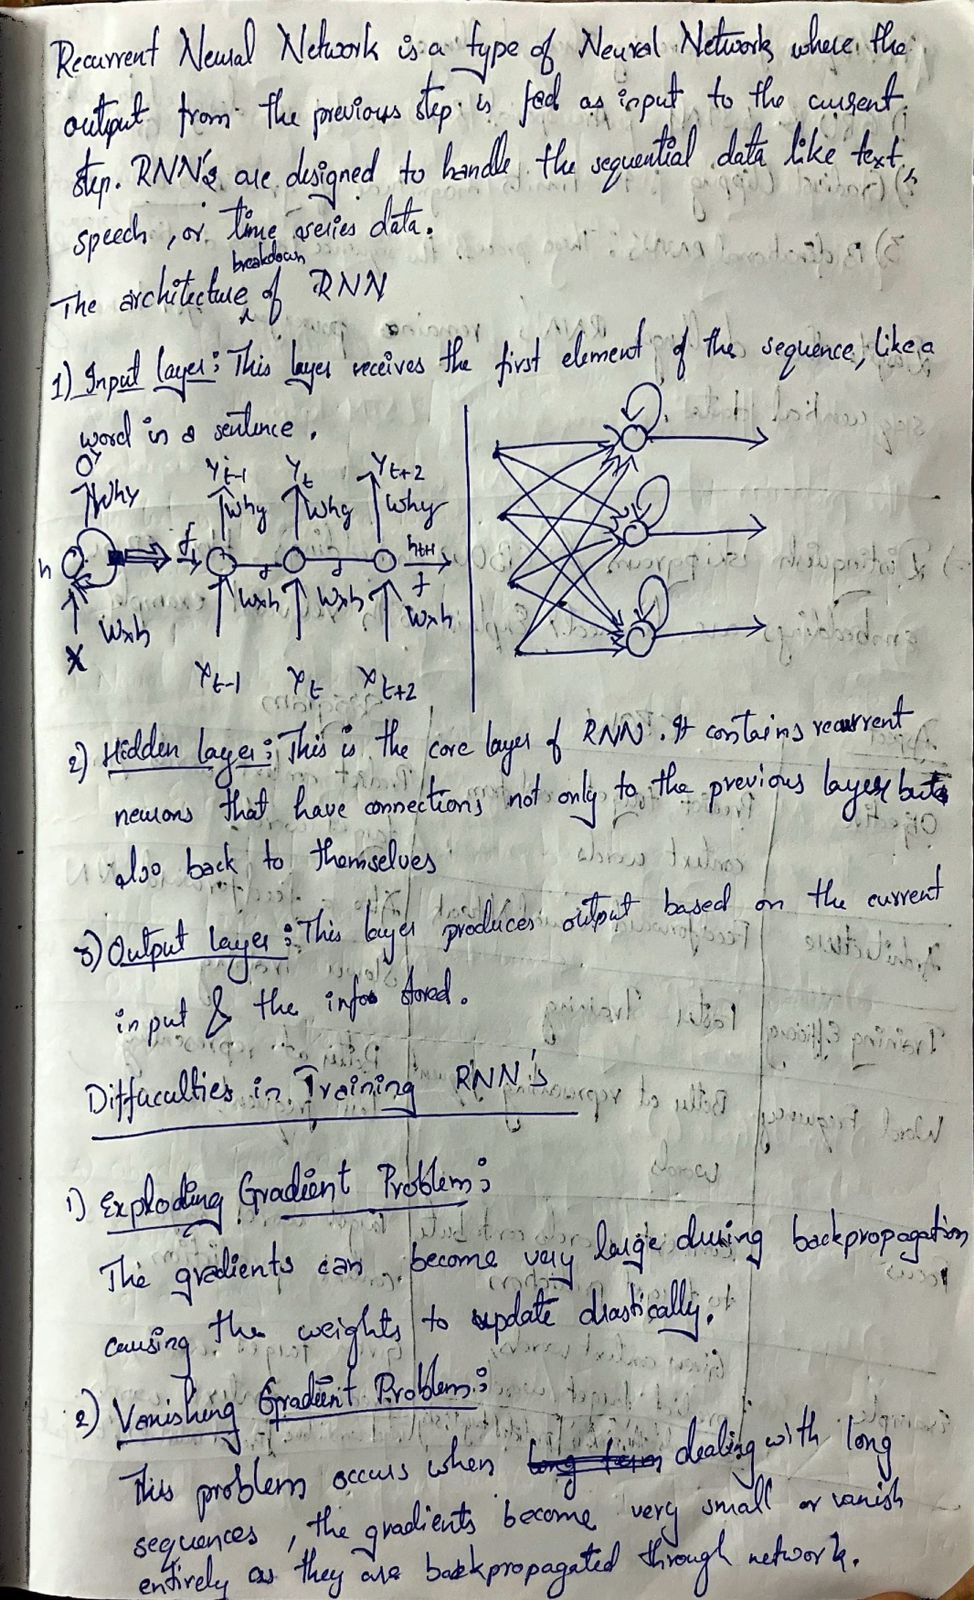 Recurrent Neural Network is a type of Neural Network where the
output from the previous step is fed as input to the current
step. RNN's are designed to handle the sequential data like text,
speech, or time series data.
The architecture breakdown of RNN
1) Input layer: This layer receives the first element of the sequence, like a
word in a sentence.
y
Why
h
Wxh
X
yt-1 yt yt+2
Why Why Why
f ht+1
f
Wxh Wxh Wxh
xt-1 xt xt+2
2) Hidden layer: This is the core layer of RNN. It contains recurrent
neurons that have connections not only to the previous layer but
also back to themselves
3) Output layer: This layer produces output based on the current
input & the info stored.
Diffaculties in Training RNN's
1) Exploding Gradient Problem:
The gradients can become very large during backpropagation
causing the weights to update drastically.
2) Vanishing Gradient Problem:
This problem occurs when long term dealing with long
sequences, the gradients become very small or vanish
entirely as they are backpropagated through network.